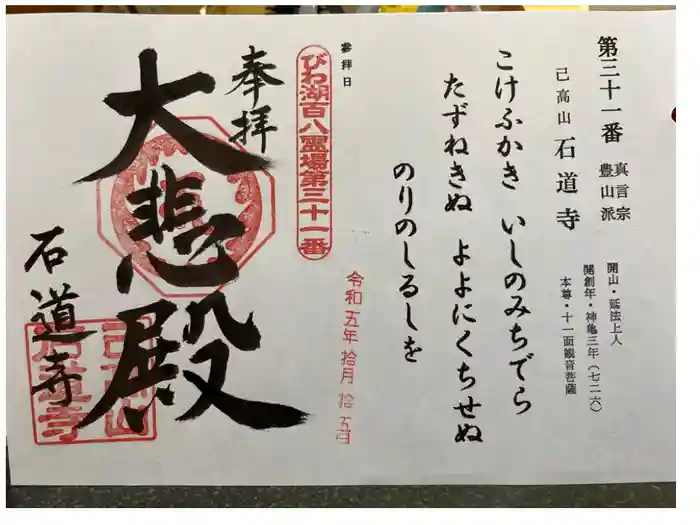 第三十一番
真言宗
豊山派
己高山 石道寺
開山・延法上人
開創年・神亀三年(七二六)
本尊・十一面観音菩薩
こけふかき いしのみちでら
たずねきぬ よよにくちせぬ
のりのしるしを
参拝日
令和五年拾月拾五日
びわ湖百八霊場第三十一番
奉拝
大悲殿
石道寺